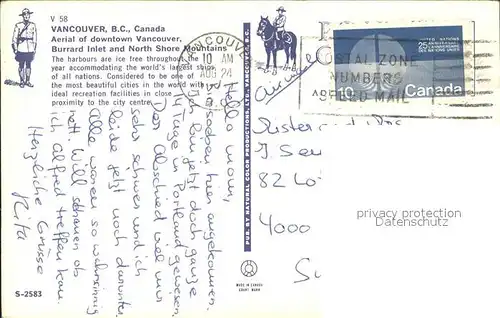 V 58
VANCOUVER, B.C., Canada
Aerial of downtown Vancouver,
Burrard Inlet and North Shore Mountains
The harbours are ice free throughout the
year accommodating the world's largest ships
of all nations. Considered to be one of
the most beautiful cities in the world with
ideal recreation facilities in close
proximity to the city centre.
VANCOUVER
10 AM
AUG 24
POSTAL ZONE
NUMBERS
SPEED MAIL
UNITED NATIONS
25
10
Canada
Hallo mom,
soeben hier angekommen.
Ich bin jetzt doch ganze
14 Tage in Portland gewesen
Der Abschied viel mir
sehr schwer und ich
leide jetzt noch darunter.
Alle waren so wahnsinnig
nett. Will schauen ob
ich Alfred treffen kann.
Herzliche Grüsse
Rita
82
4000
PUB. BY NATURAL COLOR PRODUCTIONS LTD.
MADE IN CANADA
COURT NOAH
S-2583
privacy protection
Datenschutz